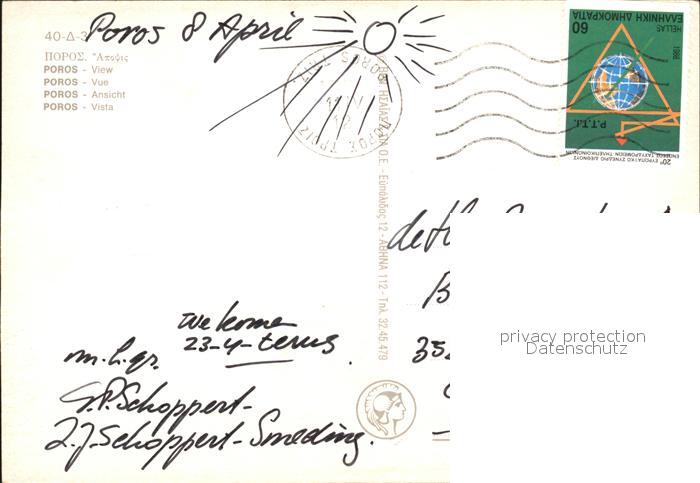 40-Δ-3
Poros 8 April
ΠΟΡΟΣ. Ἄποψις
POROS - View
POROS - Vue
POROS - Ansicht
POROS - Vista
POROS
ΕΛΛΗΝΙΚΗ ΔΗΜΟΚΡΑΤΙΑ 60
HELLAS 1988
P.T.T.I.
20º ΕΥΡΩΠΑΪΚΟ ΣΥΝΕΔΡΙΟ ΔΙΕΘΝΟΥΣ
ΕΝΩΣΕΩΣ ΤΑΧΥΔΡΟΜΕΙΩΝ ΤΗΛΕΠΙΚΟΙΝΩΝΙΩΝ
Ο.Ε. - Εὐπόλιδος 12 - ΑΘΗΝΑ 112 - Τηλ. 32.45.479
de
B
35
we komen
23-4-terus.
m.h.gr.
G.P. Schoppert-
J.J. Schoppert-Smeding.
privacy protection
Datenschutz